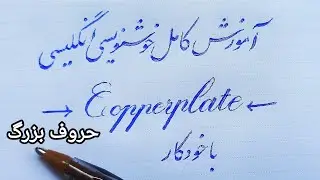 آموزش کامل خوشنویسی انگلیسی
→ Copperplate ←
حروف بزرگ
با خودکار